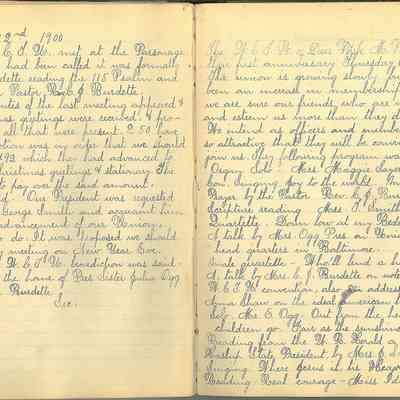 2nd 1900
C. T. U. met at the Parsonage
had been called it was formally
dette reading the 115 Psalm and
Pastor Rev. E. J. Burdette.
utes of the last meeting approved &
mas greetings were received & pro-
all that were present 2.50 have
otion was in order that we should
$93 which they had advanced to
hristmas greetings & stationery. The
to pay over the said amount.
ed. Our President was requested
George Smith and acquaint him
advancement of our Union.
to do. It was proposed we should
meeting on New Year Eve.
C. T. U. benediction was said
the home of Pres Sister Julia Ogg
Burdette
Sec.
The W. C. T. U. of Deer Park M.
their first anniversary Thursday
The union is growing slowly
been an increase in membership
we are sure our friends who are
and esteem us more than they d
We intend as officers and membe
so attractive that they will be
join us. The following program was
Organ Solo. Miss Maggie
Con. Singing Joy to the world.
Prayer by the Pastor Rev. E. J. Bur
Scripture reading. Miss J. Smith
Quartette. Down low at my
A talk by Mrs. Ogg Pres. on
head quarters in Baltimore.
male quartette - Who'll lend a h
A talk by Mrs. E. J. Burdette on notes
W. C. T. U. convention, also on address
Anna Shaw on the ideal american
Mrs. E. Ogg. Out from the hea
children go. Fair as the sunshine
Reading from the W. R. Herald
State President by Mrs. E.
Singing. Where Jesus is
Reading. Real courage - Miss Id